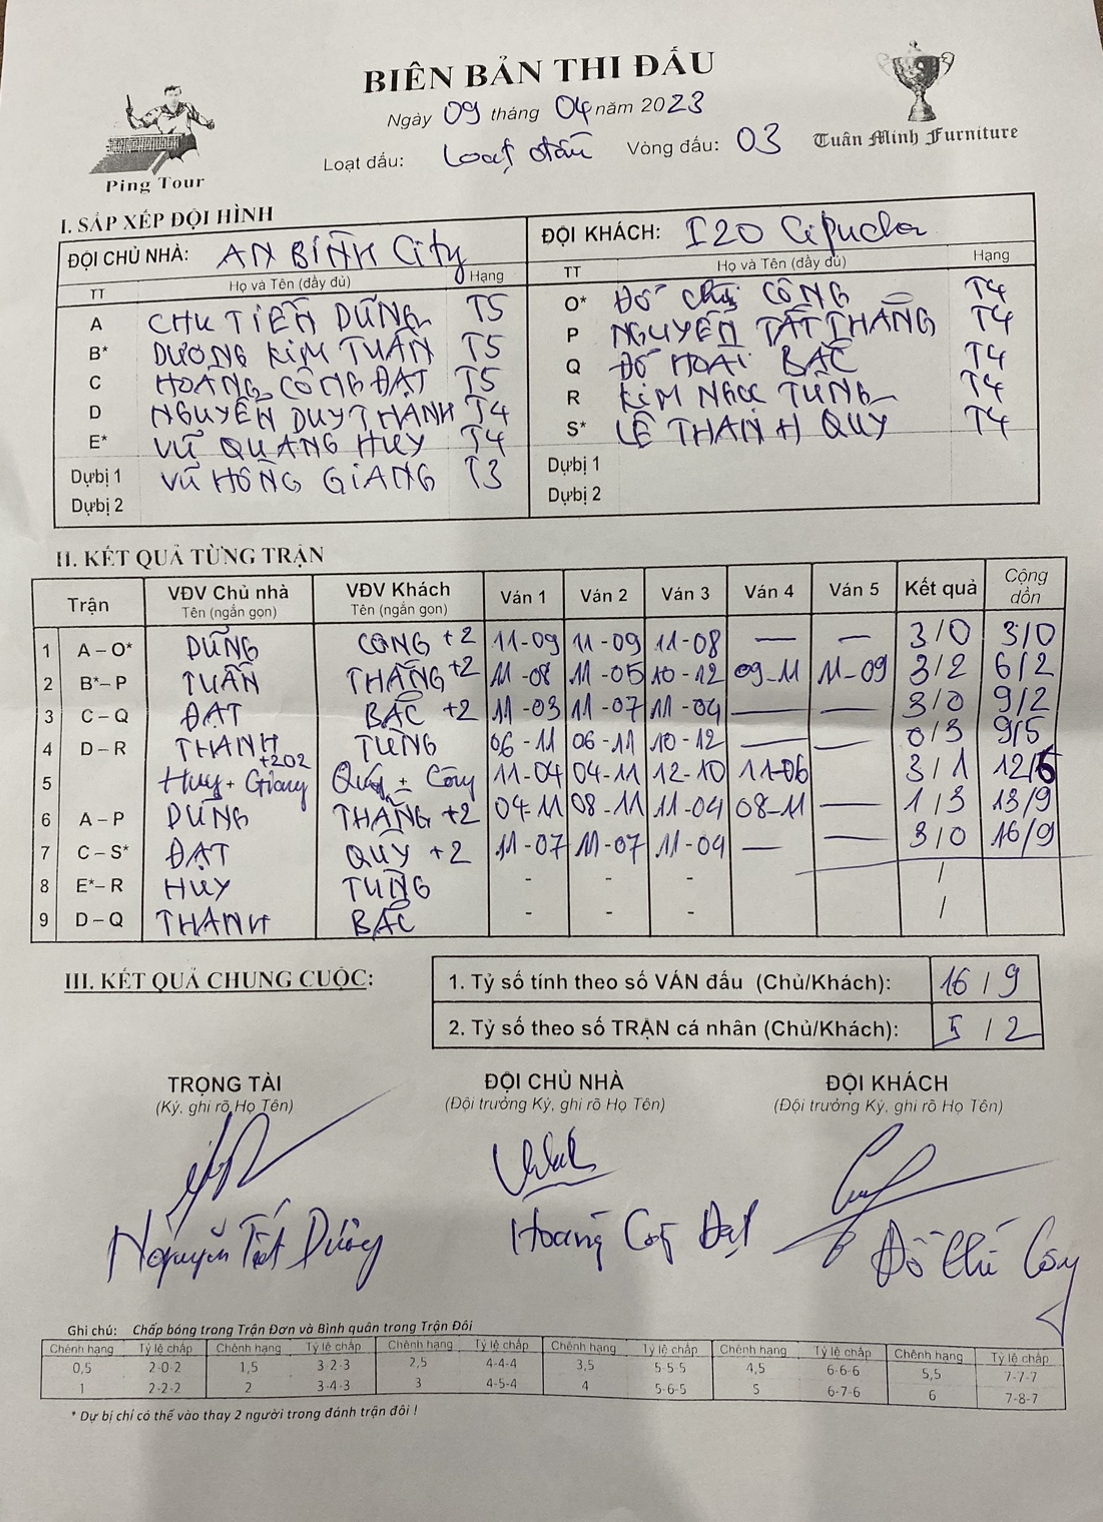 BIÊN BẢN THI ĐẤU
Ngày 09 tháng 04 năm 2023
Loạt đấu: Loạt đấu Vòng đấu: 03
Ping Tour
Tuân Minh Furniture
I. SẮP XẾP ĐỘI HÌNH
ĐỘI CHỦ NHÀ: AN BÌNH City ĐỘI KHÁCH: I20 Ciputra
TT Họ và Tên (đầy đủ) Hạng TT Họ và Tên (đầy đủ) Hạng
A CHU TIẾN DŨNG T5 O* ĐỖ CHÍ CÔNG T4
B* DƯƠNG KIM TUẤN T5 P NGUYỄN TẤT THẮNG T4
C HOÀNG CÔNG ĐẠT T5 Q ĐỖ HOÀI BẮC T4
D NGUYỄN DUY THÀNH T4 R KIM NGỌC TÙNG T4
E* VŨ QUANG HUY T4 S* LÊ THANH QUÝ T4
Dự bị 1 VŨ HỒNG GIANG T3 Dự bị 1
Dự bị 2 Dự bị 2
II. KẾT QUẢ TỪNG TRẬN
Trận VĐV Chủ nhà Tên (ngắn gọn) VĐV Khách Tên (ngắn gọn) Ván 1 Ván 2 Ván 3 Ván 4 Ván 5 Kết quả Cộng dồn
1 A – O* DŨNG CÔNG +2 11-09 11-09 11-08 — — 3/0 3/0
2 B*– P TUẤN THẮNG +2 11-08 11-05 10-12 09-11 11-09 3/2 6/2
3 C – Q ĐẠT BẮC +2 11-03 11-07 11-04 — — 3/0 9/2
4 D – R THÀNH TÙNG 06-11 06-11 10-12 — — 0/3 9/5
5 Huy + Giang +202 Quý + Công 11-04 04-11 12-10 11-06 3/1 12/6
6 A – P DŨNG THẮNG +2 04-11 08-11 11-04 08-11 — 1/3 13/9
7 C – S* ĐẠT QUÝ +2 11-07 11-07 11-04 — — 3/0 16/9
8 E*– R HUY TÙNG - - - /
9 D – Q THÀNH BẮC - - - /
III. KẾT QUẢ CHUNG CUỘC:
1. Tỷ số tính theo số VÁN đấu (Chủ/Khách): 16 / 9
2. Tỷ số theo số TRẬN cá nhân (Chủ/Khách): 5 / 2
TRỌNG TÀI ĐỘI CHỦ NHÀ ĐỘI KHÁCH
(Ký, ghi rõ Họ Tên) (Đội trưởng Ký, ghi rõ Họ Tên) (Đội trưởng Ký, ghi rõ Họ Tên)
Nguyễn Dương Hoàng Công Đạt Đỗ Chí Công
Ghi chú: Chấp bóng trong Trận Đơn và Bình quân trong Trận Đôi
Chênh hạng Tỷ lệ chấp Chênh hạng Tỷ lệ chấp Chênh hạng Tỷ lệ chấp Chênh hạng Tỷ lệ chấp Chênh hạng Tỷ lệ chấp Chênh hạng Tỷ lệ chấp
0,5 2-0-2 1,5 3-2-3 2,5 4-4-4 3,5 5-5-5 4,5 6-6-6 5,5 7-7-7
1 2-2-2 2 3-4-3 3 4-5-4 4 5-6-5 5 6-7-6 6 7-8-7
* Dự bị chỉ có thể vào thay 2 người trong đánh trận đôi !